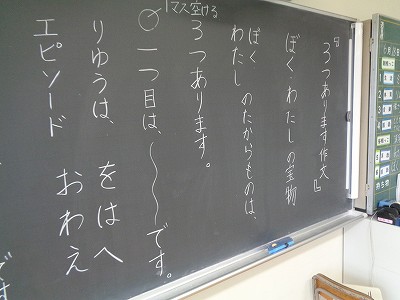 『3つあります作文』
ぼく・わたしの宝物
ぼく
わたし のたからものは、
3つあります。
1マス空ける
一つ目は、〜〜です。
りゆうは、をはへ
エピソード おわえ
です